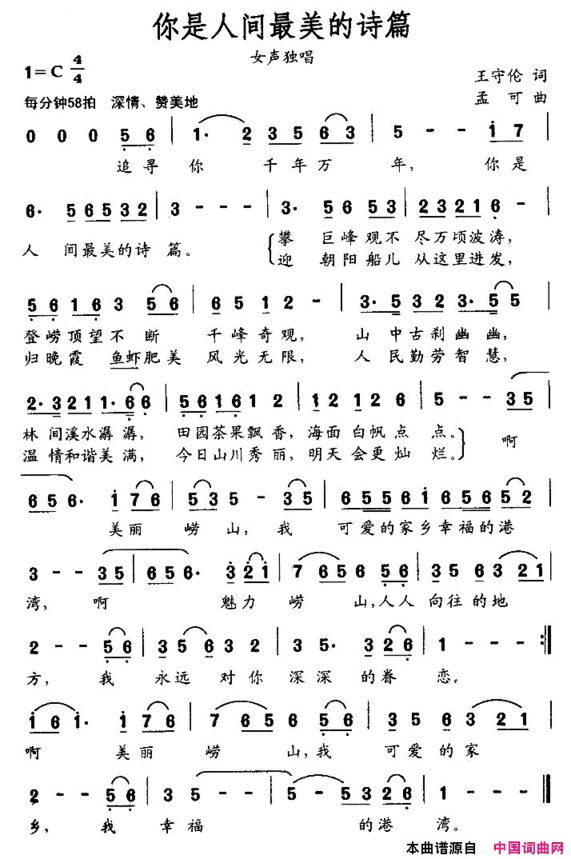 你是人间最美的诗篇
女声独唱
1=C 4/4
王守伦 词
每分钟58拍 深情、赞美地
孟可 曲
0 0 0 5 6 | 1· 2 3 5 6 3 | 5 - - 1 7 |
追寻你 千年万 年， 你是
6· 5 6 5 3 2 | 3 - - - | 3· 5 6 5 3 | 2 3 2 1 6 - |
人 间最美的诗 篇。 攀 巨峰观不 尽万顷波涛，
迎 朝阳船儿 从这里进发，
5 6 1 6 3 5 5 | 6 5 1 2 - | 3· 5 3 2 3· 5 5 |
登崂顶望不断 千峰奇观， 山中古刹幽幽，
归晚霞 鱼虾肥美 风光无限， 人民勤劳智慧，
2· 3 2 1 1· 6 6 | 5 6 1 6 1 2 | 1 2 1 2 6 | 5 - - 3 5 |
林间溪水潺潺， 田园茶果飘香， 海面白帆点 点。 啊
温情和谐美满， 今日山川秀丽， 明天会更灿 烂。
6 5 6· 1 7 6 | 5 3 5 - 3 5 | 6 5 5 6 1 6 5 6 5 2 |
美丽 崂山， 我 可爱的家乡幸福的港
3 - - 3 5 | 6 5 6· 3 2 1 | 7 6 5 6 5 6 | 1 6 5 6 5 0 |
湾， 啊 魅力 崂 山，人人 向往的地
2 - - 5 6 | 1 6 5 6 3 2 | 3 5· 3 2 6 | 1 - - - :||
方， 我 永远对你 深深的眷 恋。
1 6 1· 2 1 7 | 7 6 5 6 5 6 | 3 5 6 3 2 1 |
啊 美丽 崂 山，我 可爱的家
2 - - 5 6 | 1 2 3 - - | 5 - 5 3 5 6 | 1 - - - ||
乡， 我 幸福 的港 湾。
本曲谱源自 中国词曲网